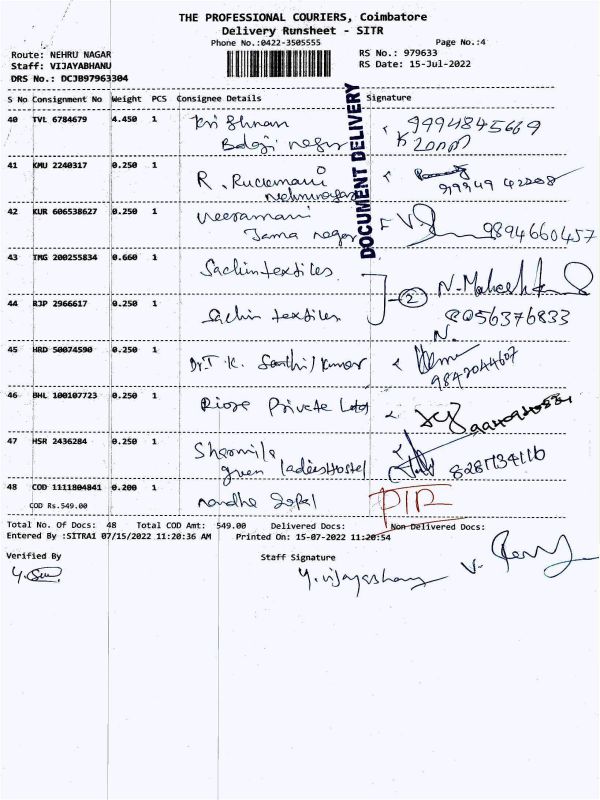 THE PROFESSIONAL COURIERS, Coimbatore
Delivery Runsheet - SITR
Phone No.:0422-3505555
Page No.:4
Route: NEHRU NAGAR
RS No.: 979633
Staff: VIJAYABHANU
RS Date: 15-Jul-2022
DRS No.: DCJB97963304
S No Consignment No Weight PCS Consignee Details Signature
DOCUMENT DELIVERY
40 TVL 6784679 4.450 1 Krishnan 9994845669
Balaji nagar
41 KMU 2240317 0.250 1 R. Ruckmani
Nehrunagar 99949 42208
42 KUR 606538627 0.250 1 Veeramani
Jama nagar 9894660457
43 TMG 200255834 0.660 1 Sachin textiles
2
44 RJP 2966617 0.250 1 Sachin textiles
45 HRD 50074590 0.250 1 Dr.T.K. Senthil Kumar N.
9842044607
46 BHL 100107723 0.250 1 Private
47 HSR 2436284 0.250 1 Sharmila
green ladies Hostel
48 COD 1111804841 0.200 1 nandha gopal
COD Rs.549.00
Total No. Of Docs: 48 Total COD Amt: 549.00 Delivered Docs: Non Delivered Docs:
Entered By :SITRA1 07/15/2022 11:20:36 AM Printed On: 15-07-2022 11:20:54
Verified By Staff Signature